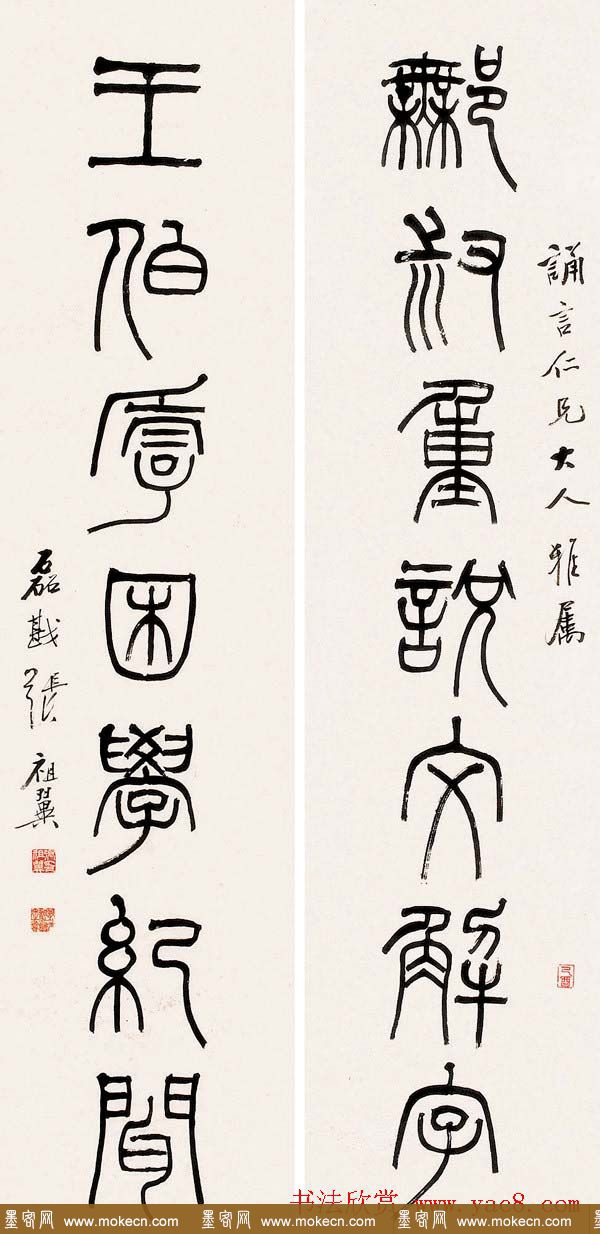 誦言仁兄大人雅屬
鄦叔重說文解字
己酉
王伯厚困學紀聞
磊戡張祖翼
书法欣赏 www.yac8.com
墨客网 www.mokecn.com 墨客网 www.mokecn.com 墨客网 www.mokecn.com